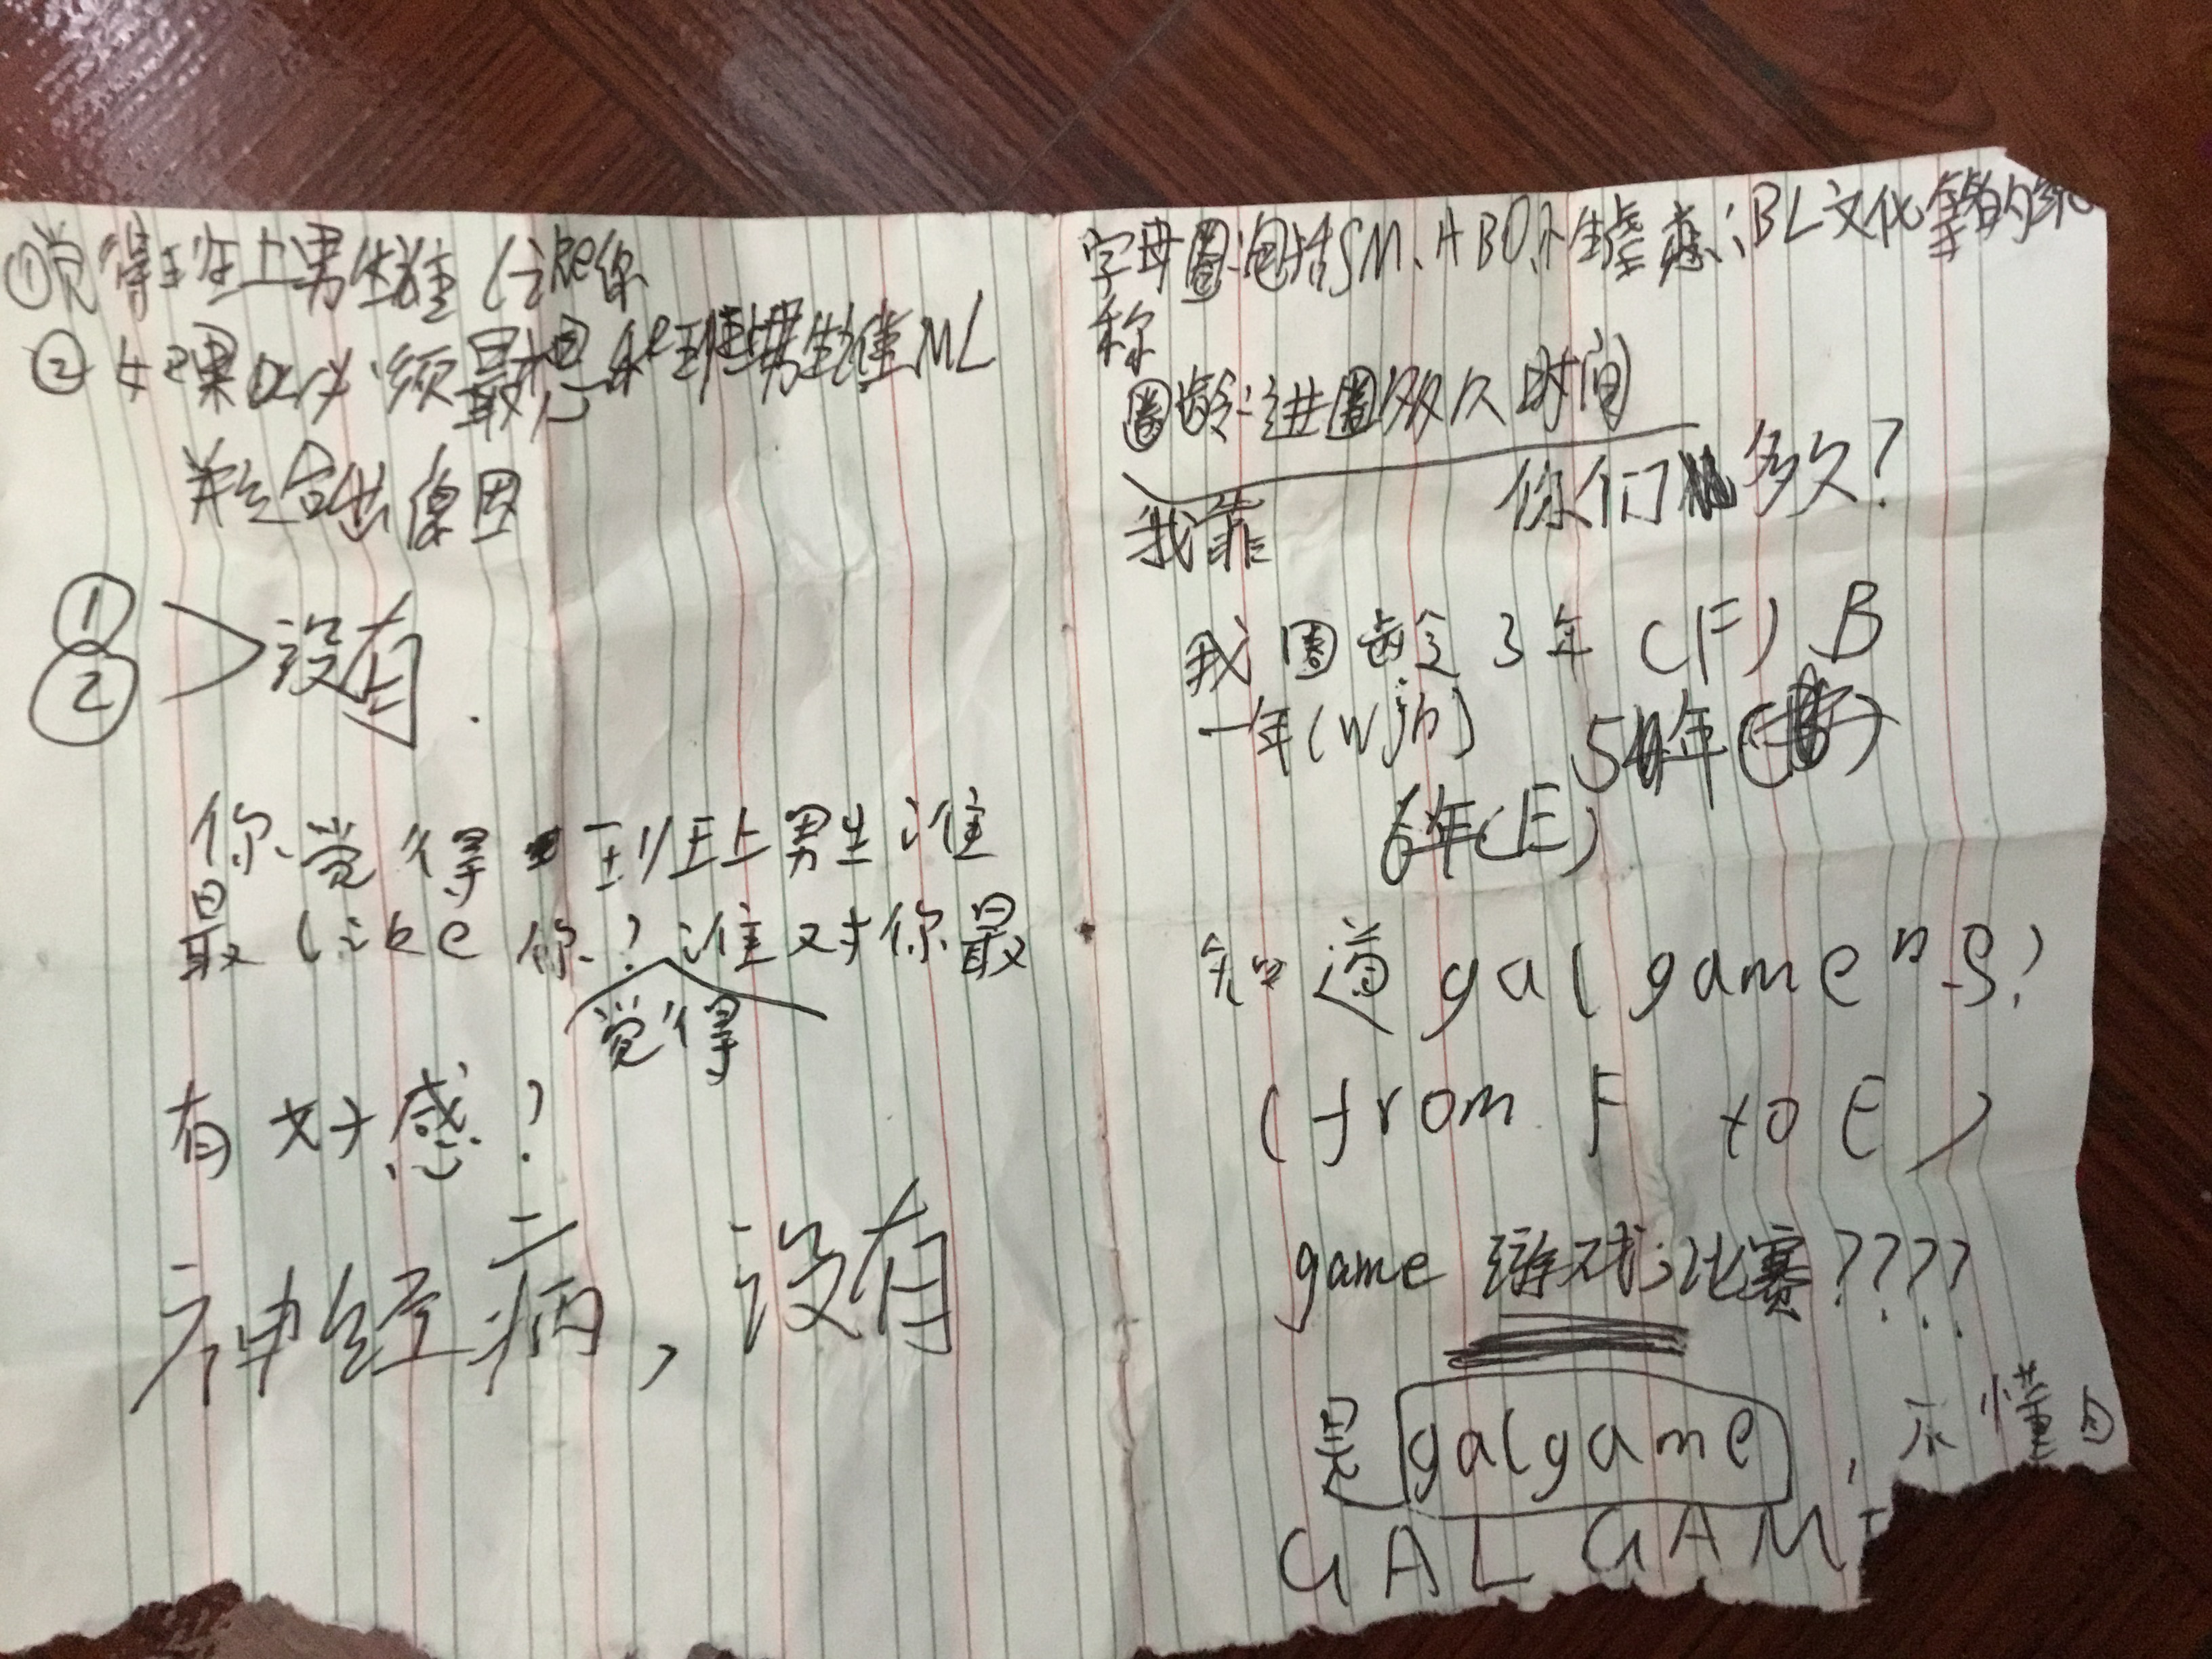 ①觉得班上男生谁like你
②如果必须最想和班上男生谁ML
并给出原因
①
② >没有.
你觉得 班上男生谁
最like你?谁对你最
觉得
有好感?
神经病,没有
字母圈:包括SM、ABO、BL文化等的统
称
圈龄:进圈多久时间
你们 多久?
我靠
我圈龄3年(F) B
一年(Wjh) 5年
6年(E)
知道galgame吗?
(from F to E)
game 游戏;比赛????
是galgame,不懂
GALGAM